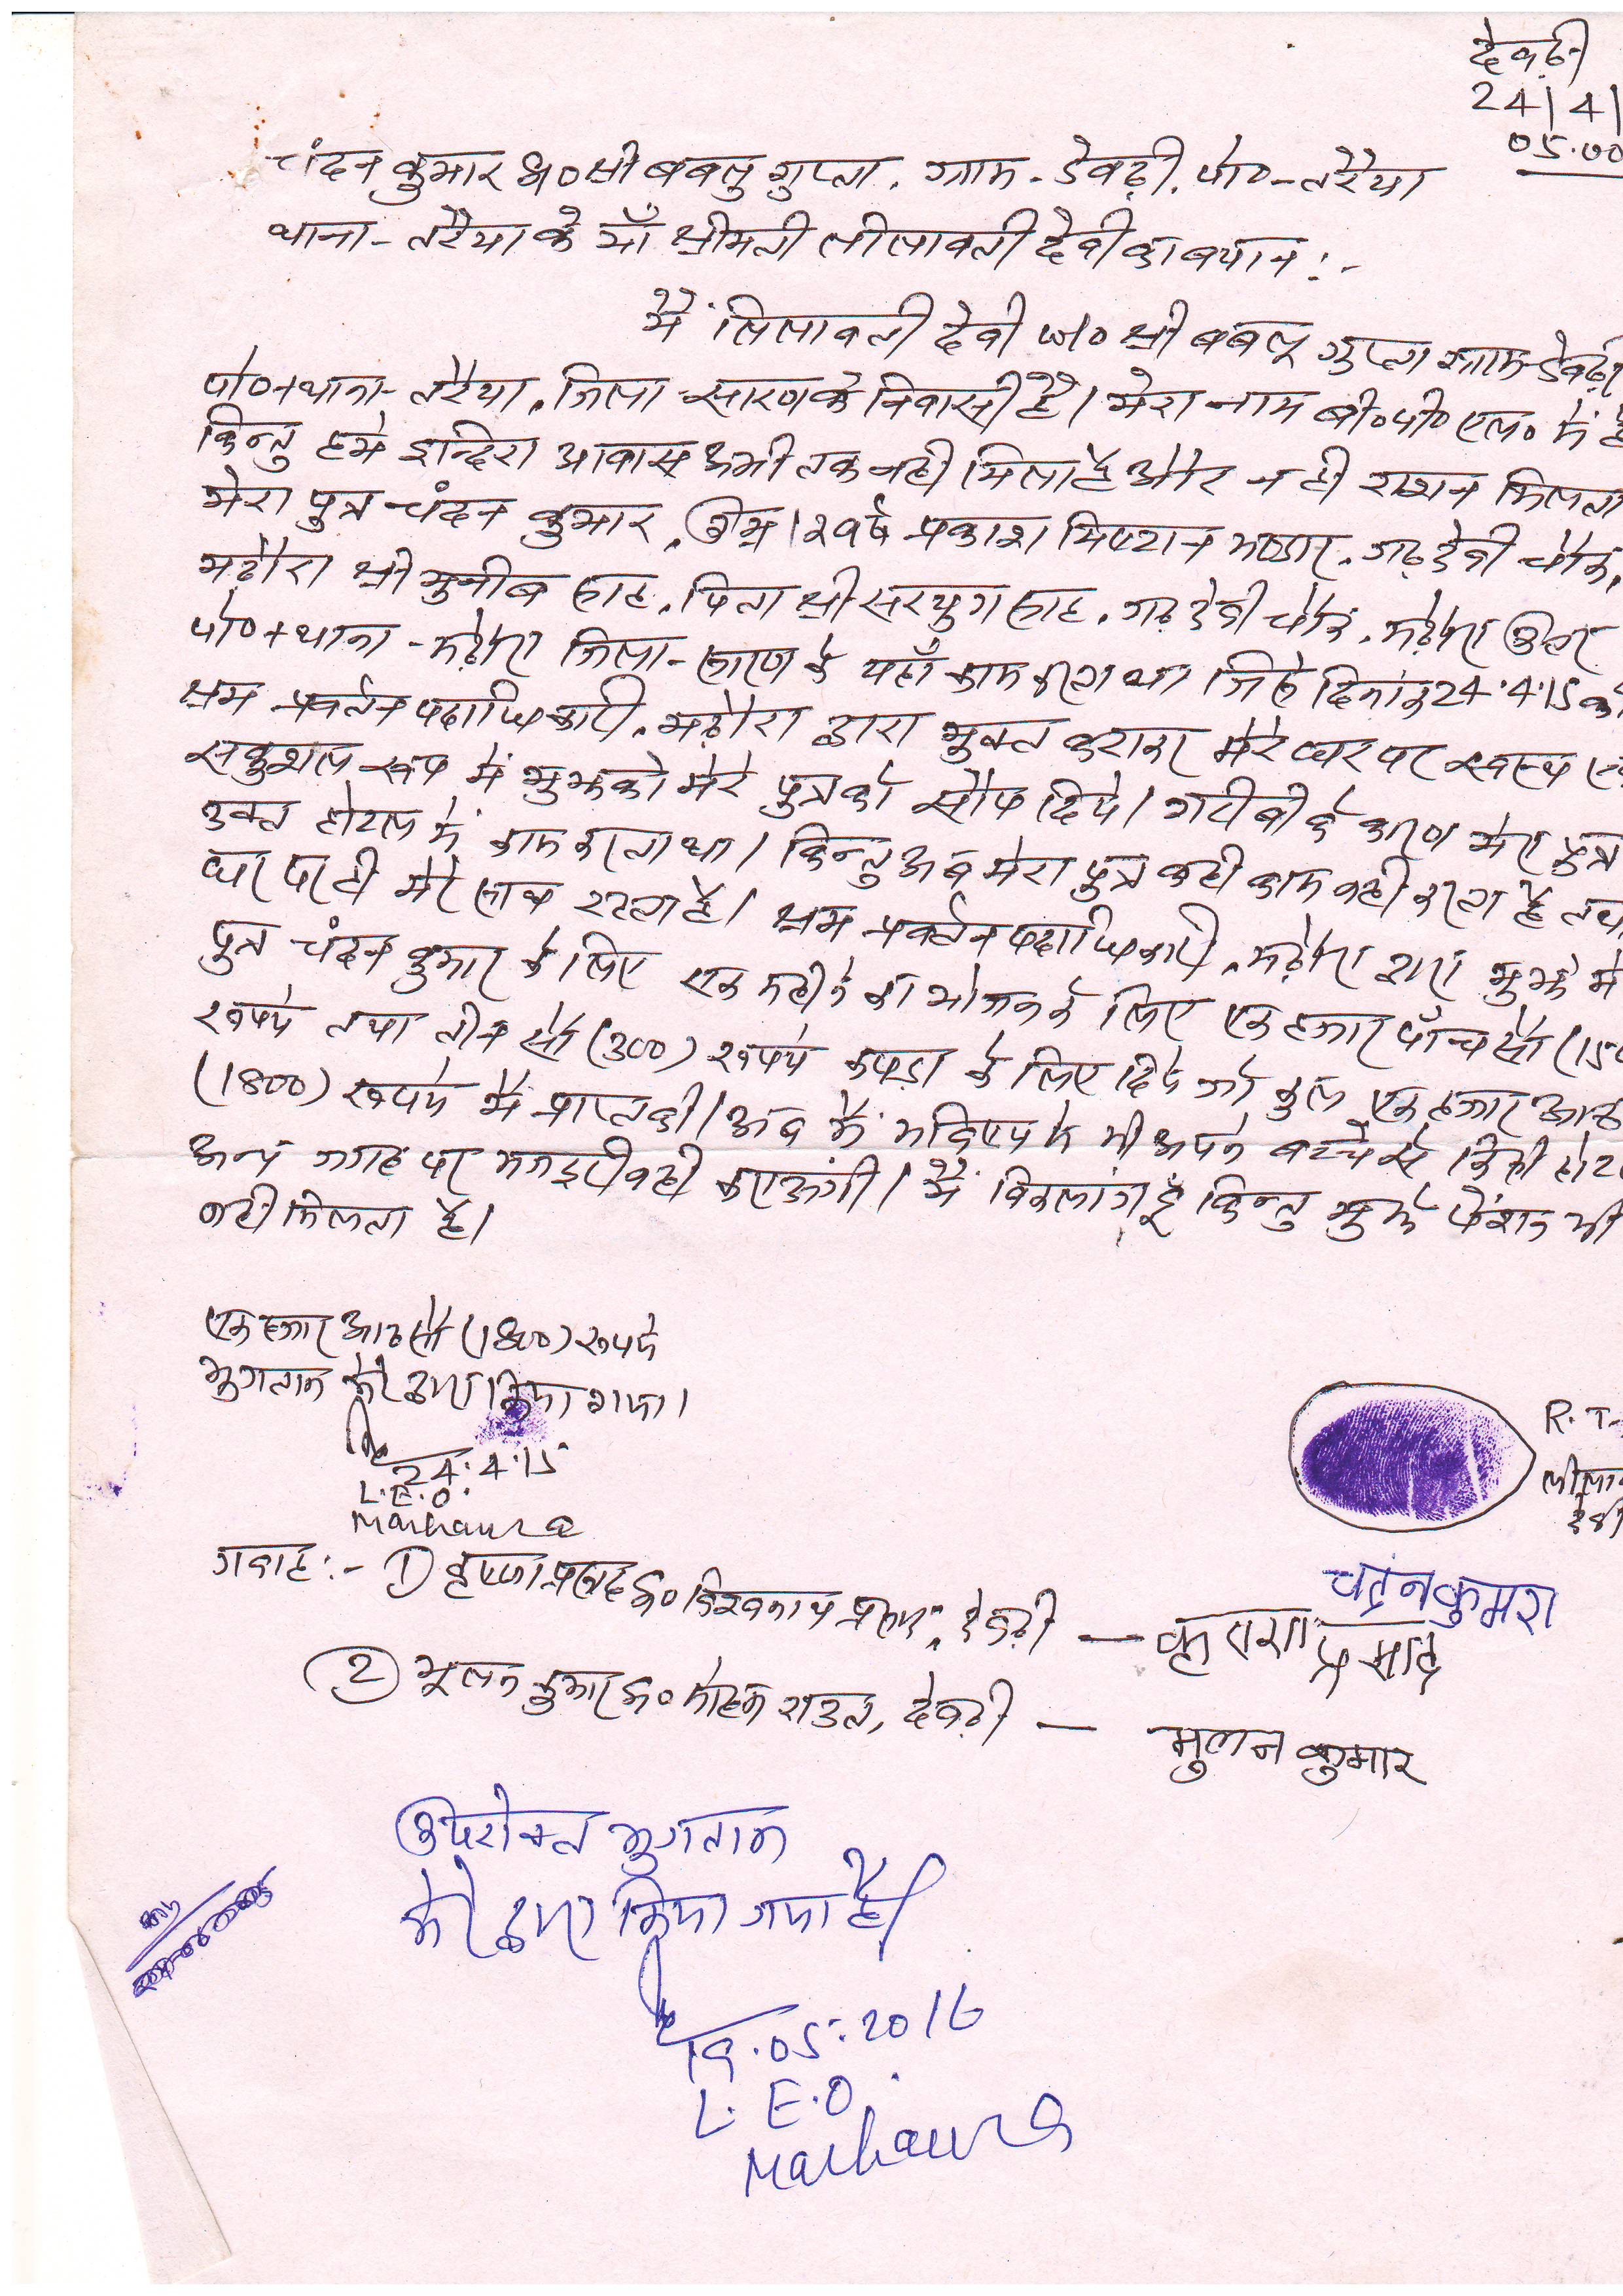 देवढ़ी
24/4/
05.00
चंदन कुमार S/० श्री बबलु गुप्ता, ग्राम - डेवढ़ी, पो० - तरैया
थाना - तरैया के माँ श्रीमती लीलावती देवी का बयान :-
मैं लिलावती देवी W/० श्री बबलू गुप्ता ग्राम - डेवढ़ी
पो० + थाना - तरैया, जिला - सारण के निवासी हैं। मेरा नाम बी० पी० एल० में है
किन्तु हमे इन्दिरा आवास अभी तक नही मिला है और न ही राशन मिलता
मेरा पुत्र चंदन कुमार, उम्र 12 वर्ष प्रकाश मिष्टान भण्डार, गढ़देवी चौक,
मढ़ौरा श्री मुनीब साह, पिता श्री सरयुग साह, गढ़देवी चौक, मढ़ौरा
पो० + थाना - मढ़ौरा जिला - सारण के यहाँ काम करता था जिसे दिनांक 24.4.15 को
श्रम प्रवर्तन पदाधिकारी, मढ़ौरा द्वारा मुक्त कराकर मेरे घर पर स्वस्थ एवं
सकुशल रूप में मुझको मेरे पुत्र को सौंप दिये। गरीबी के कारण मेरा पुत्र
उक्त होटल में काम करता था। किन्तु अब मेरा पुत्र कही काम नही करता है तथा
घर पर ही मेरे साथ रहता है। श्रम प्रवर्तन पदाधिकारी, मढ़ौरा द्वारा मुझे मेरे
पुत्र चंदन कुमार के लिए एक महीने का भोजन के लिए एक हजार पाँच सौ (150
रूपये तथा तीन सौ (300) रूपये कपड़ा के लिए दिये जो कुल एक हजार आठ
(1800) रूपये मैं प्राप्त की। अब मैं भविष्य में भी अपने बच्चे से किसी होटल
अन्य जगह पर मजदूरी नही कराऊंगी। मैं विकलांग हूँ किन्तु मुझे पेंशन भी
नही मिलता है।
एक हजार आठ सौ (1800) रूपये
भुगतान मेरे द्वारा किया गया।
24.4.15
L.E.O.
Marhaura
R. T.
लीला
देवी
चदंन कुमरा
गवाह :- 1) कृष्णा प्रसाद S/० विश्वनाथ प्रसाद, देवढ़ी — कृवशा प्रसाद
2) भूलन कुमार S/० मोहन राउत, देवढ़ी — मुलन कुमार
उपरोक्त भुगतान
मेरे द्वारा किया गया है।
19.05.2016
L.E.O.
Marhaura